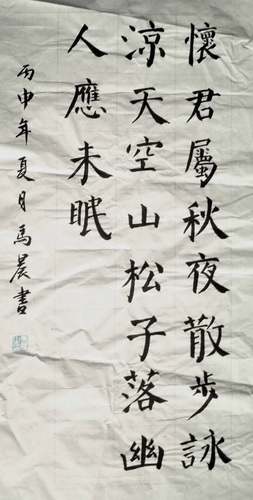 懷君屬秋夜散步詠
涼天空山松子落幽
人應未眠
丙申年夏月馬晨書